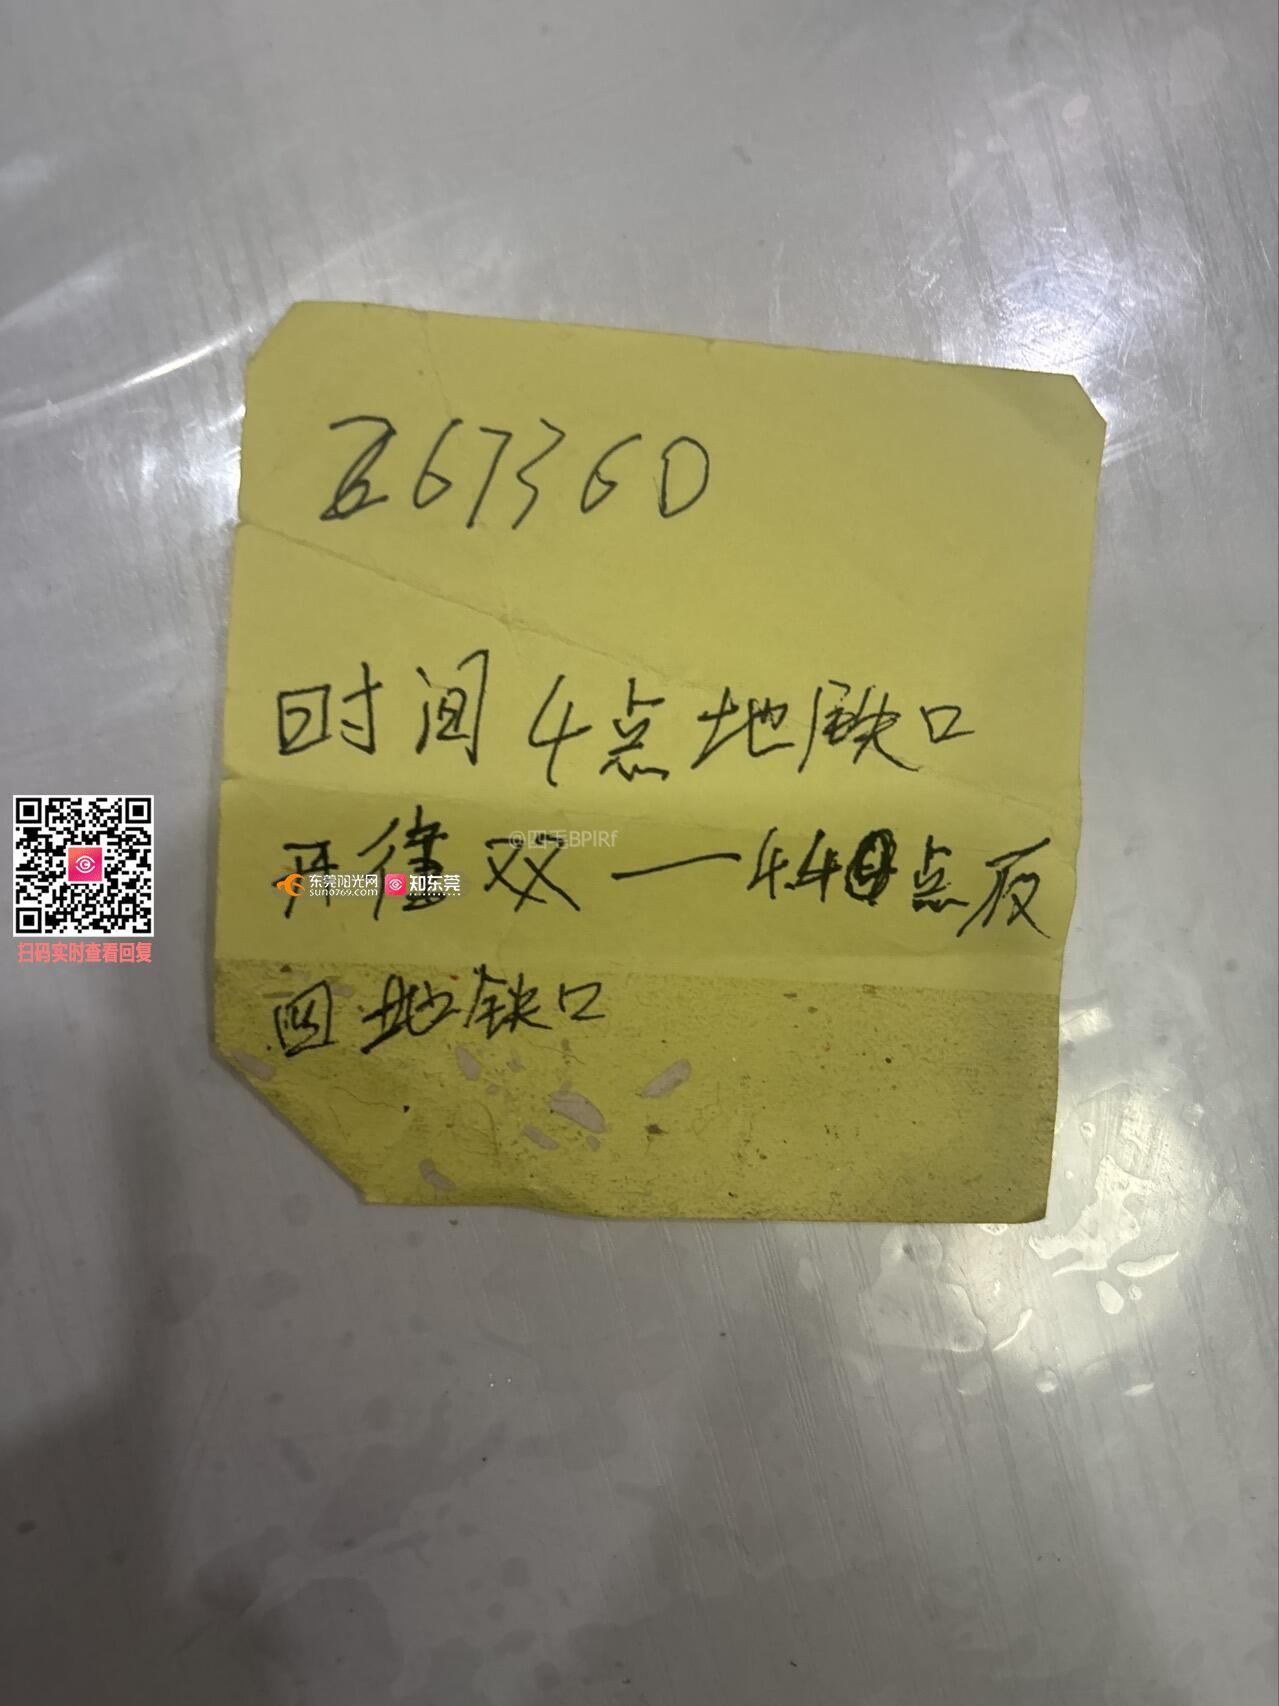 67360
时间4点地铁口
开往双一4.40点返
回地铁口
@四毛BPIRf
东莞阳光网
sun0769.com
知东莞
扫码实时查看回复